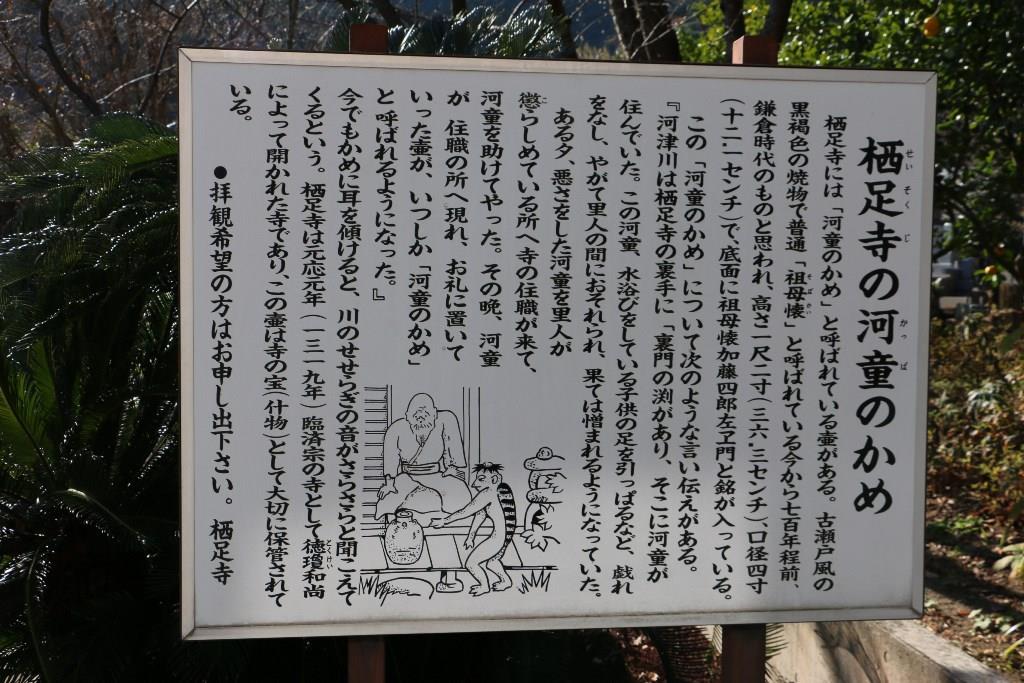 栖足寺の河童のかめ
せいそくじ かっぱ
栖足寺には「河童のかめ」と呼ばれている壺がある。古瀬戸風の
黒褐色の焼物で普通「祖母懐」と呼ばれている今から七百年程前、
鎌倉時代のものと思われ、高さ一尺二寸(三六・三センチ)、口径四寸
(十二・一センチ)で、底面に祖母懐加藤四郎左ヱ門と銘が入っている。
この「河童のかめ」について次のような言い伝えがある。
『河津川は栖足寺の裏手に「裏門の渕」があり、そこに河童が
住んでいた。この河童、水浴びをしている子供の足を引っぱるなど、戯れ
をなし、やがて里人の間におそれられ、果ては憎まれるようになっていた。
ある夕、悪さをした河童を里人が
懲らしめている所へ寺の住職が来て、
こ
河童を助けてやった。その晩、河童
が 住職の所へ現れ、お礼に置いて
いった壺が、いつしか「河童のかめ」
と呼ばれるようになった。』
今でもかめに耳を傾けると、川のせせらぎの音がさらさらと聞こえて
くるという。栖足寺は元応元年(一三一九年)臨済宗の寺として徳瓊和尚
とくけい
によって開かれた寺であり、この壺は寺の宝(什物)として大切に保管されて
いる。
●拝観希望の方はお申し出下さい。 栖足寺